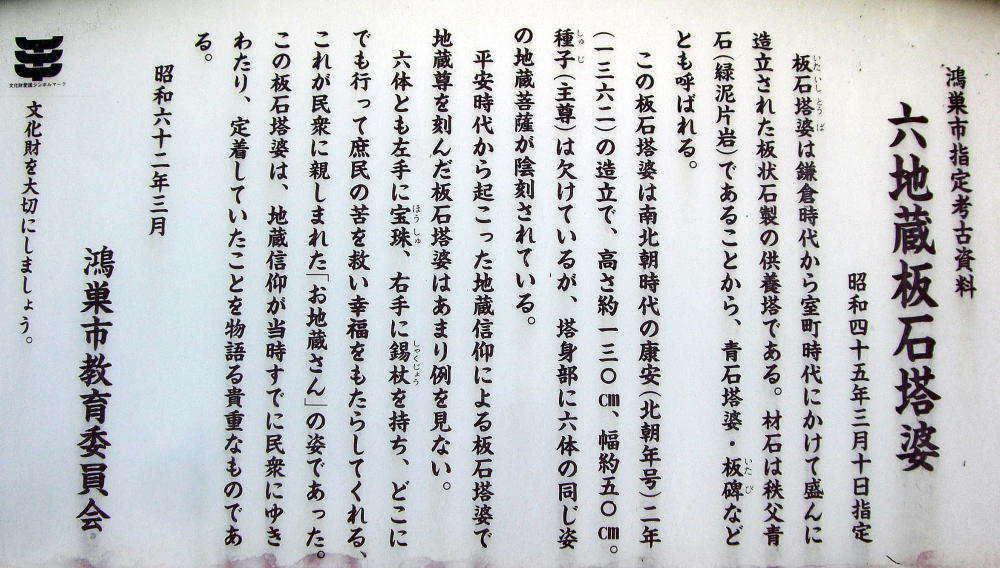 鴻巣市指定考古資料
六地蔵板石塔婆
昭和四十五年三月十日指定
板石塔婆は鎌倉時代から室町時代にかけて盛んに
造立された板状石製の供養塔である。材石は秩父青
石(緑泥片岩)であることから、青石塔婆・板碑など
とも呼ばれる。
この板石塔婆は南北朝時代の康安(北朝年号)二年
(一三六二)の造立で、高さ約一三〇㎝、幅約五〇㎝。
種子(主尊)は欠けているが、塔身部に六体の同じ姿
の地蔵菩薩が陰刻されている。
平安時代から起こった地蔵信仰による板石塔婆で
地蔵尊を刻んだ板石塔婆はあまり例を見ない。
六体とも左手に宝珠、右手に錫杖を持ち、どこに
でも行って庶民の苦を救い幸福をもたらしてくれる、
これが民衆に親しまれた「お地蔵さん」の姿であった。
この板石塔婆は、地蔵信仰が当時すでに民衆にゆき
わたり、定着していたことを物語る貴重なものであ
る。
昭和六十二年三月
鴻巣市教育委員会
文化財愛護シンボルマーク
文化財を大切にしましょう。